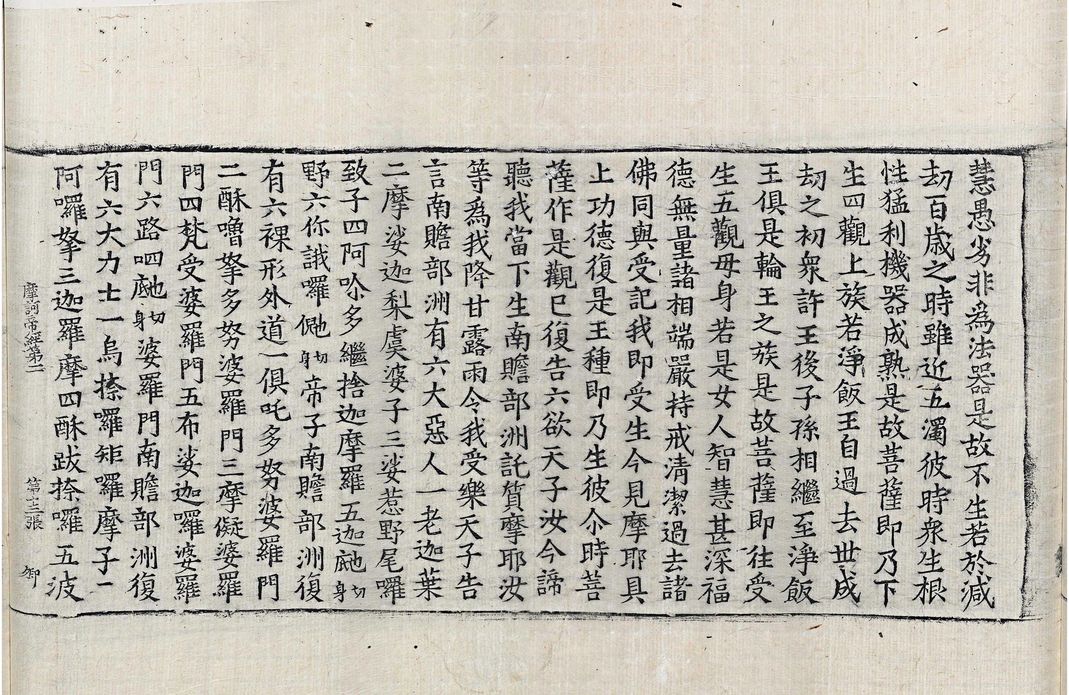 慧愚劣非為法器是故不生若於減
刼百歳之時雖近五濁彼時衆生根
性猛利機器成熟是故菩薩即乃下
生四觀上族若淨飯王自過去世成
刼之初衆許王後子孫相繼至淨飯
王俱是輪王之族是故菩薩即往受
生五觀母身若是女人智慧甚深福
德無量諸相端嚴持戒清潔過去諸
佛同與受記我即受生今見摩耶具
上功德復是王種即乃生彼尒時菩
薩作是觀已復告六欲天子汝今諦
聽我當下生南贍部洲託質摩耶汝
等為我降甘露雨令我受樂天子告
言南贍部洲有六大惡人一老迦葉
二摩娑迦梨虞婆子三娑惹野尾囉
致子四阿唋多繼捨迦摩羅五迦䟢切身
野六你誐囉㑜切身帝子南贍部洲復
有六裸形外道一俱吒多努婆羅門
二酥嚕拏多努婆羅門三摩儗婆羅
門四梵受婆羅門五布娑迦囉婆羅
門六路呬䟢切身婆羅門南贍部洲復
有六大力士一烏捺囉矩囉摩子一
阿囉拏三迦羅摩四酥跋捺囉五波
摩訶帝經第二 第十三張 御